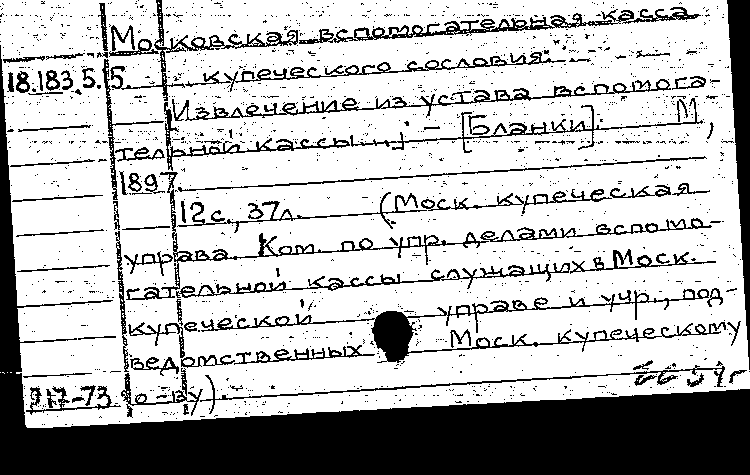 Московская вспомогательная касса
18.183.5.5. купеческого сословия.
Извлечение из устава вспомога-
тельной кассы... – [Бланки]. М,
1897.
12с., 37л. (Моск. купеческая
управа. Ком. по упр. делами вспомо-
гательной кассы служащих в Моск.
купеческой управе и учр., под-
ведомственных Моск. купеческому
917-73 о-ву).
54г